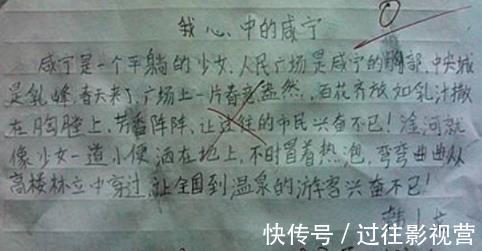 我心中的咸宁
0
咸宁是一个平躺的少女,人民广场是咸宁的胸部,中央城
是乳峰,春天来了,广场上一片春意盎然,百花齐放如乳汁撒
在胸膛上,芳香阵阵,让过往的市民兴奋不已!淦河就
像少女一道小便洒在地上,不时冒着热泡,弯弯曲曲从
高楼林立中穿过,让全国到温泉的游客兴奋不已!
快传号/过往影视营